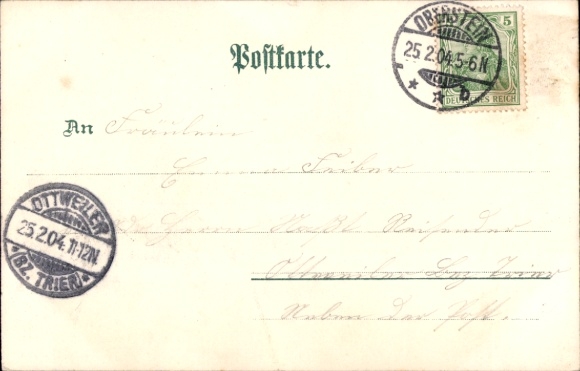 Postkarte.
OBERSTEIN
25.2.04.5-6N
* * b
5
DEUTSCHES REICH
An Fräulein
Emma
OTTWEILER
25.2.04.11-12N.
*(BZ. TRIER)*
Herrn
Ottweiler Bez Trier
Neben der Post.